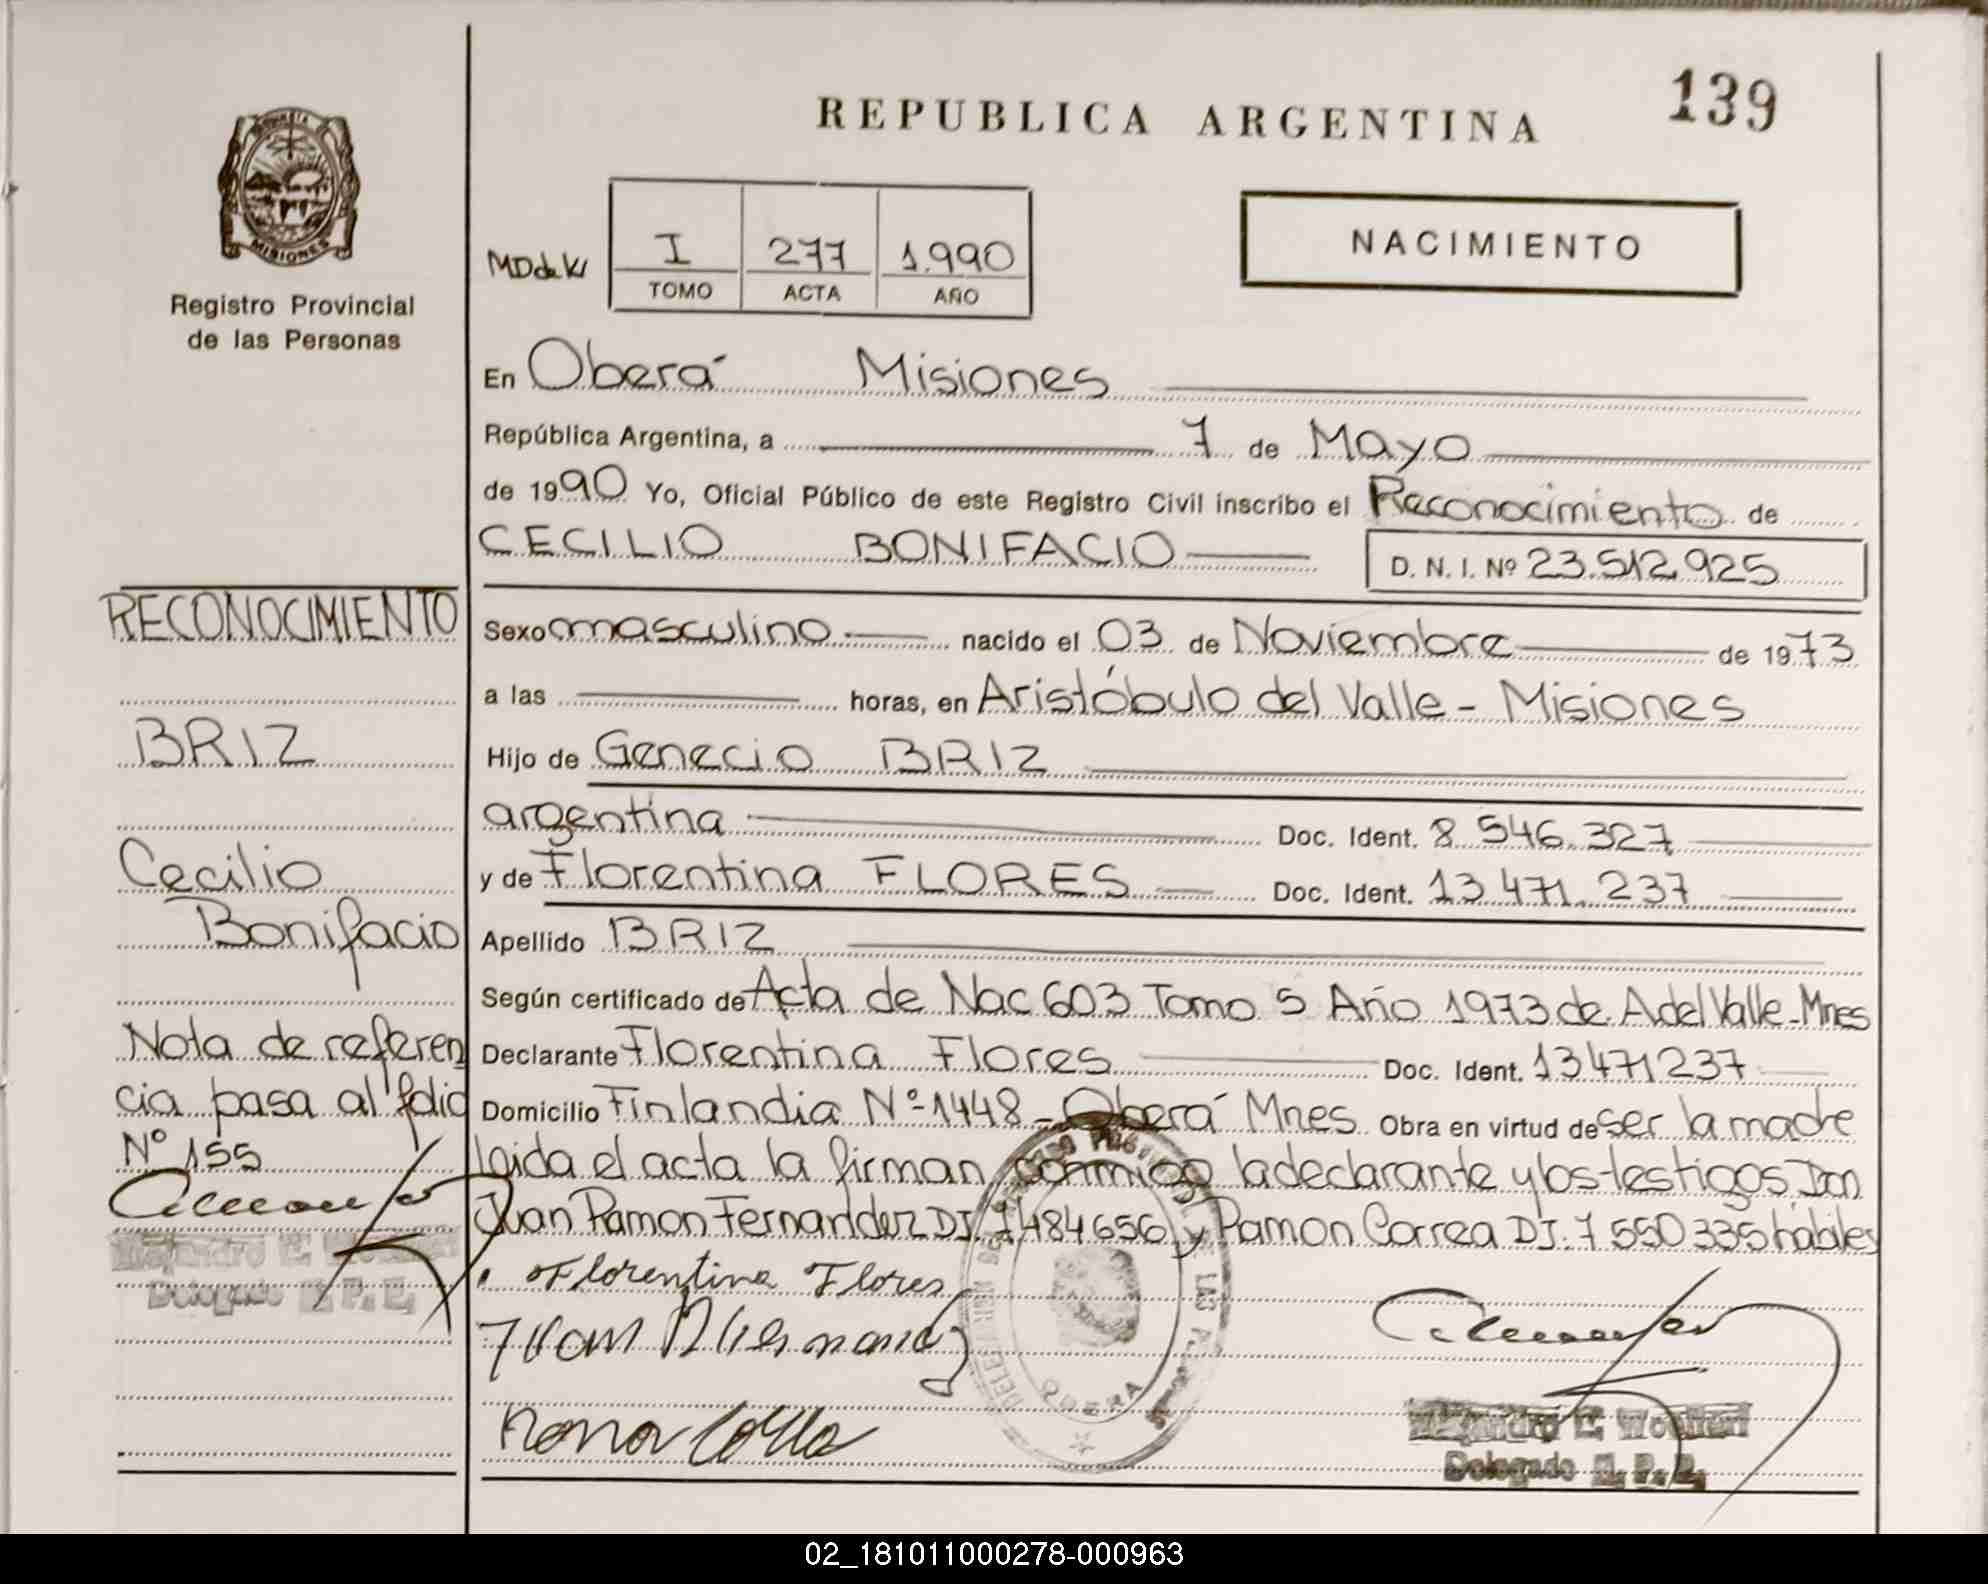 139
REPUBLICA ARGENTINA
MISIONES
Registro Provincial
de las Personas
I 277 1.990
TOMO ACTA AÑO
NACIMIENTO
En Oberá Misiones
República Argentina, a 7 de Mayo
de 1990 Yo, Oficial Público de este Registro Civil inscribo el Reconocimiento de
CECILIO BONIFACIO D. N. I. Nº 23.512.925
Sexo masculino nacido el 03 de Noviembre de 1973
a las horas, en Aristóbulo del Valle - Misiones
Hijo de Genecio BRIZ
argentina Doc. Ident. 8.546.327
y de Florentina FLORES Doc. Ident. 13.471.237
Apellido BRIZ
Según certificado de Acta de Nac 603 Tomo 5 Año 1973 de A del Valle - Mnes
Declarante Florentina Flores Doc. Ident. 13471237
Domicilio Finlandia Nº 1448 - Oberá Mnes Obra en virtud de ser la madre
laida el acta la firman conmigo la declarante y los testigos Don
Juan Ramon Fernandez DI. 7484656 y Ramon Correa DI. 7 550 335 hábiles
Florentina Flores
RECONOCIMIENTO
BRIZ
Cecilio
Bonifacio
Nota de referen
cia pasa al folio
Nº 155
Delegado R. P. P.
OBERA
Delegado R. P. P.
02_181011000278-000963